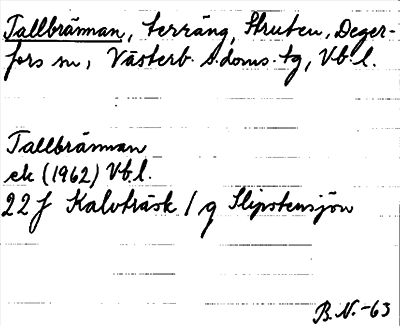 Tallbrännan, terräng, Struten, Deger-
fors sn, Västerb. s. doms. tg, Vb. l.
Tallbrännan
ek (1962) Vb. l.
22 J Kalvträsk / g Slipstensjön
B. N. -63